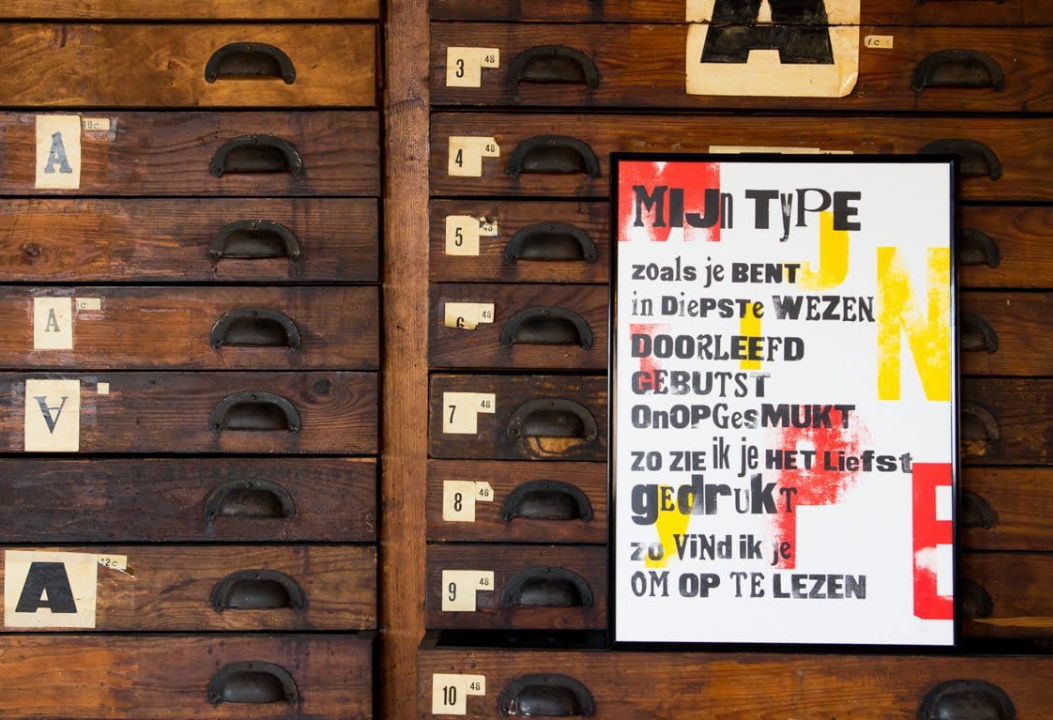 A
10c
A
A
A
12c
3 48
4 48
5 48
6 48
7 48
8 48
9 48
10 48
A
fc
MIJn TyPE
zoals je BENT
in DiePSTe WEZEN
DOORLEEFD
GEBUTST
OnOPGesMUKT
ZO ZIE ik je HET Liefst
gEdrUKT
zo ViNd ik je
OM OP TE LEZEN
M
IJ
N
T
Y
P
E